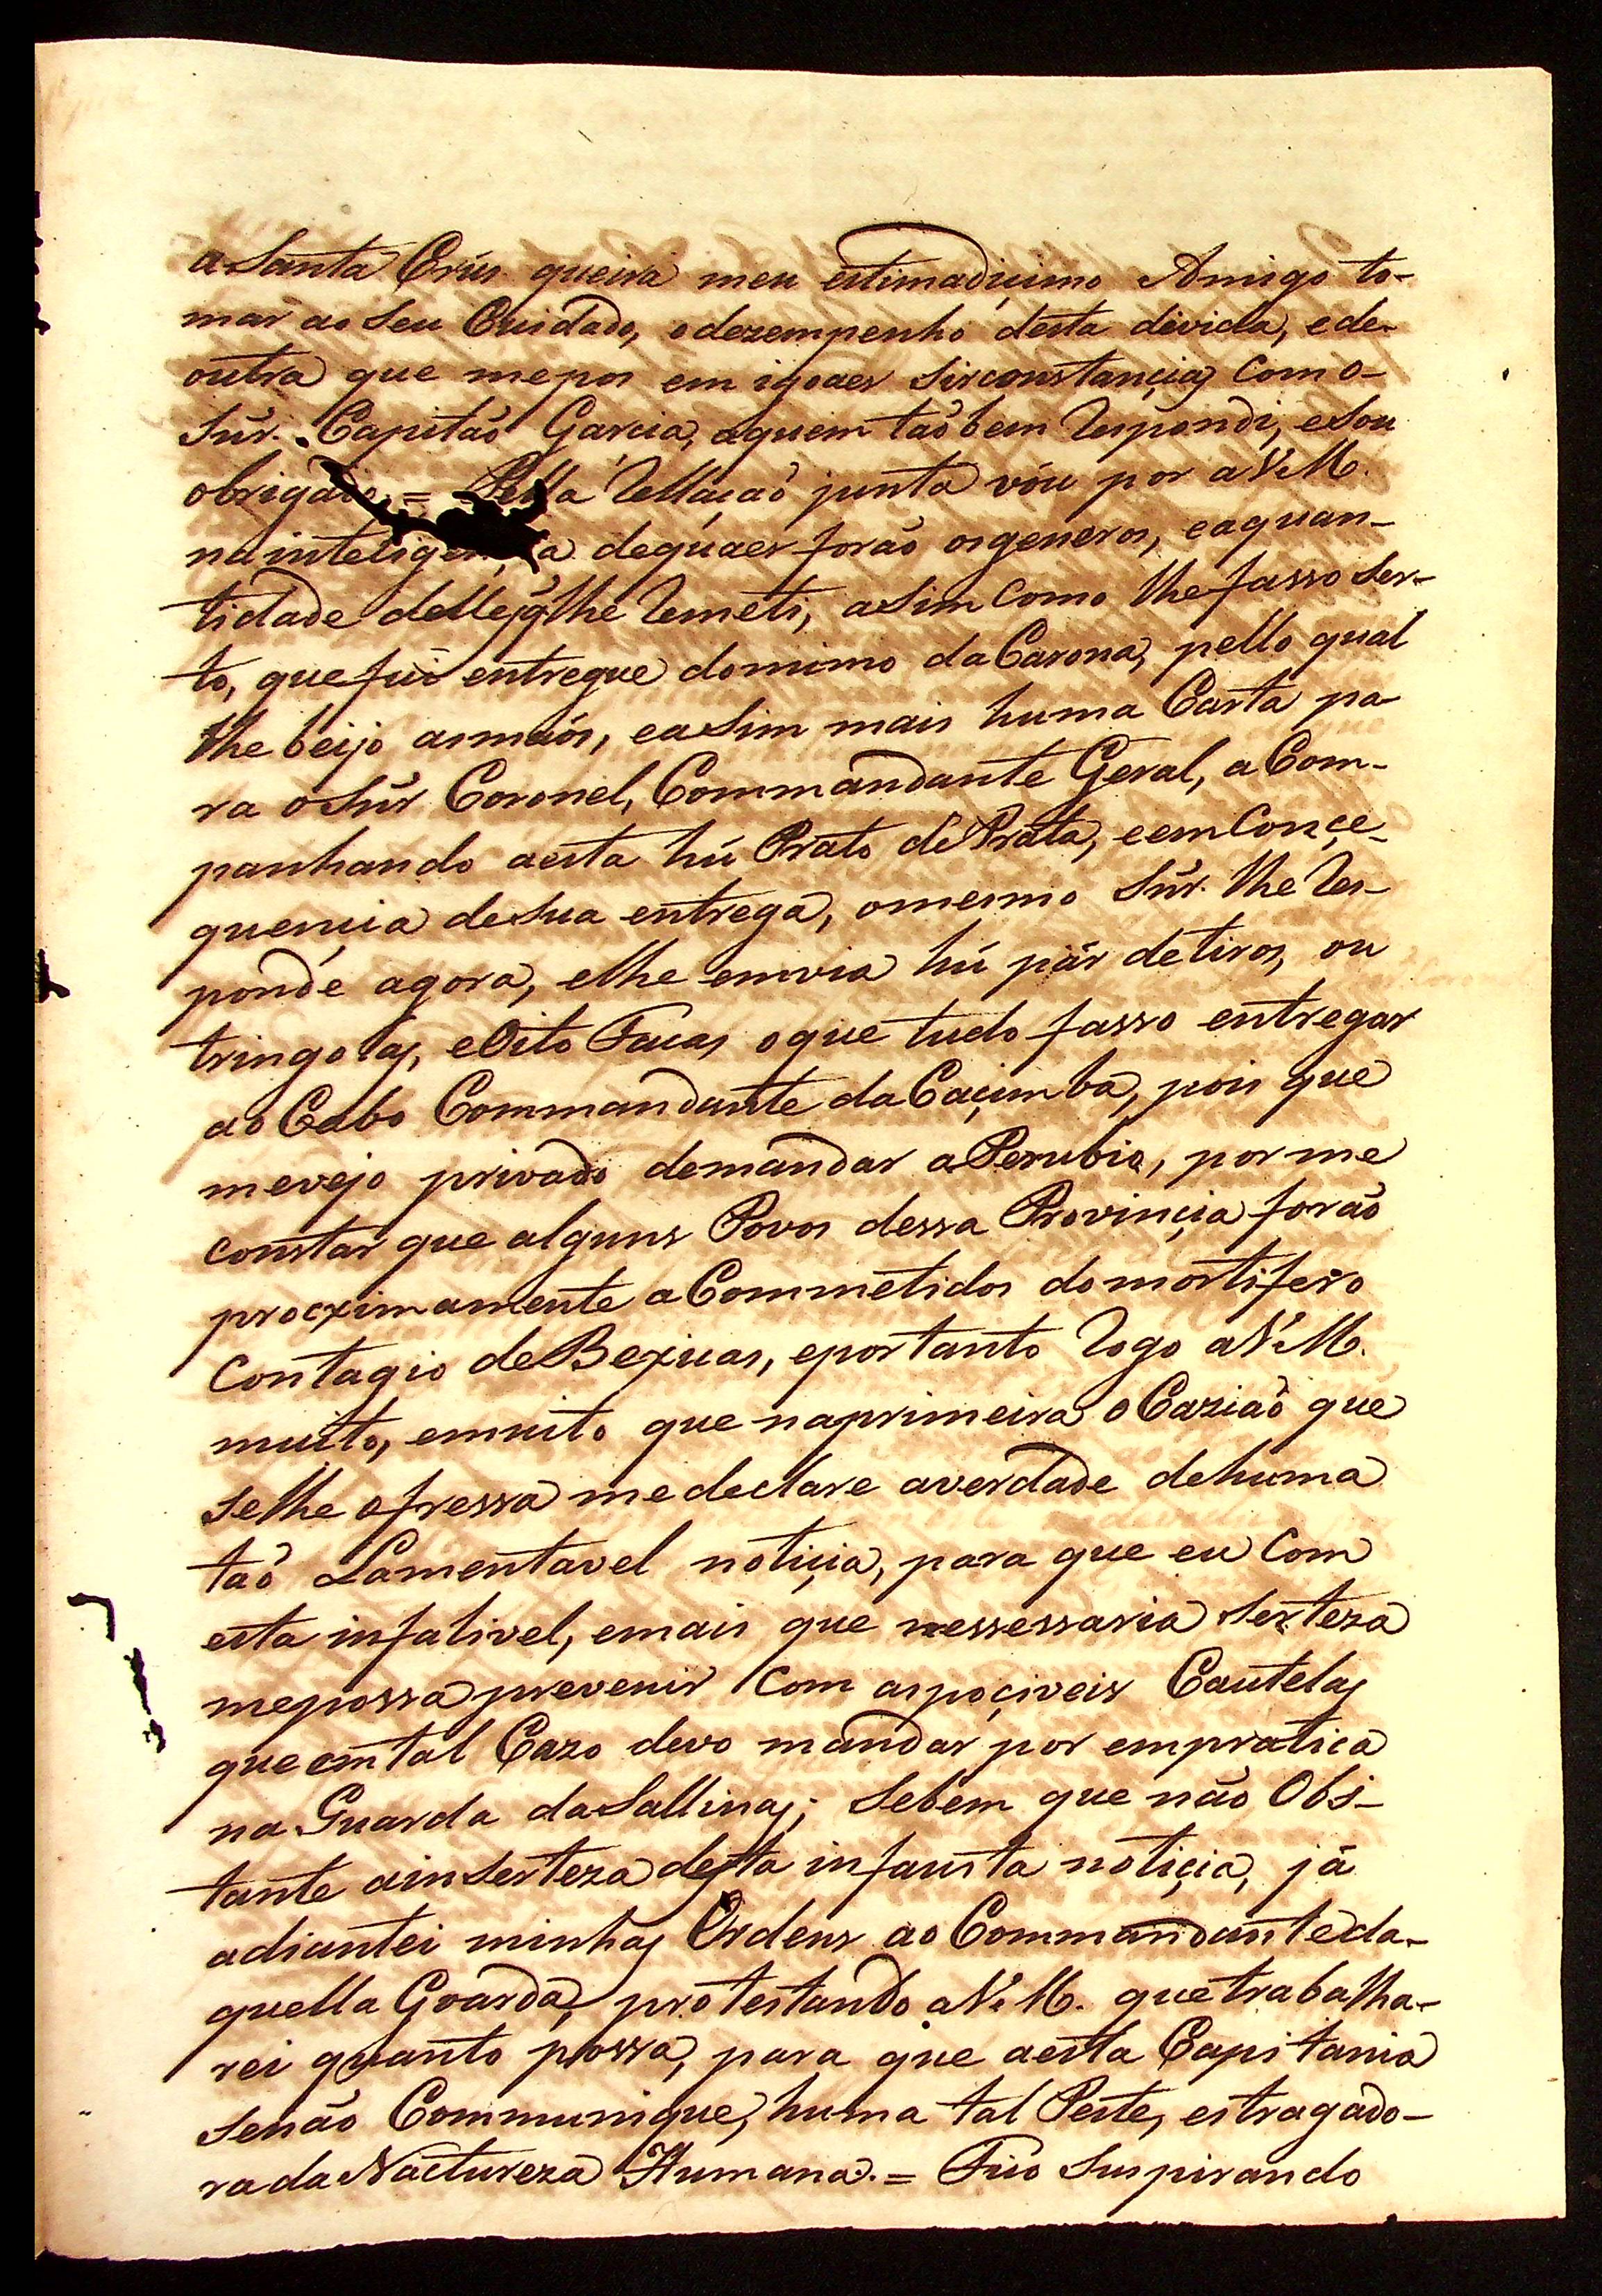 a Santa Crús queira meu estimadiçimo Amigo to-
mar ao Seu Cuidado, o dezempenho desta divida, e de-
outra que me pos em igoaes Sirconstançias Com o-
Snr. Capitaõ Garcia, aquem taõ bem Respondi, e Sou
obrigado. = Pella Rellaçaõ junta vóu por a V. M.
na inteligencia de quaes foraõ os generos, e a quan-
tidade delles q̃ lhe Remeti, a Sim Como lhe fasso Ser-
to, que fui entregue do mimo da Carona, pello qual
lhe beijo as maõs, e a Sim mais huma Carta pa-
ra o Snr Coronel, Commandante Geral, a Com-
panhando aesta hú Prato de Prata, e em Conçe-
quençia de Sua entrega, o mesmo Snr. lhe Res-
ponde agora, e lhe emvia hú pár de tiros, ou
tringolas, e Oito Facas o que tudo fasso entregar
ao Cabo Commandante da Caçimba, pois que
me vejo privado de mandar a Perubio, por me
constar que alguns Povos dessa Provinçia foraõ
procximamente a Commetidos do mortifero
Contagio de Bexicas, e por tanto Rogo a V. M.
muito, e muito que na primeira o Caziaõ que
se lhe ofressa me declare a verdade de huma
taõ Lamentavel notiçia, para que eu Com
esta infalivel, e mais que nessessaria Serteza
me possa prevenir Com as poçiveis Cautelas
que em tal Cazo devo mandar por em pratica
na Guarda da Sallinas; Se bem que naõ Obs-
tante a inSerteza desta infausta notiçia, já
adiantei minhas Ordens ao Commandante da-
quella Goarda, protestando a V. M. que trabalha-
rei quanto possa, para que aesta Capitania
se naõ Communique, huma tal Peste, estragado-
ra da Nactureza Humana. = Fico Suspirando